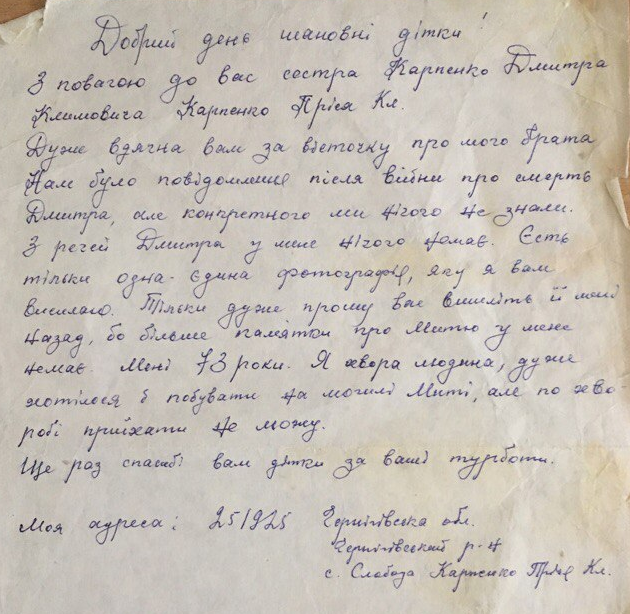 Добрий день шановні дітки!
З повагою до вас сестра Карпенко Дмитра
Климовича Карпенко Пріся Кл.
Дуже вдячна вам за вісточку про мого брата
Нам було повідомлення після війни про смерть
Дмитра, але конкретного ми нічого не знали.
З речей Дмитра у мене нічого немає. Єсть
тільки одна-єдина фотографія, яку я вам
висилаю. Тільки дуже прошу вас вишліть її мені
назад, бо більше пам'ятки про Митю у мене
немає. Мені 73 роки. Я хвора людина, дуже
хотілося б побувати на могилі Миті, але по хво-
робі приїхати не можу.
Ще раз спасибі вам дітки за ваші турботи.
Моя адреса: 251925 Чернігівська обл.
Чернігівський р-н
с. Слобода Карпенко Пріся Кл.